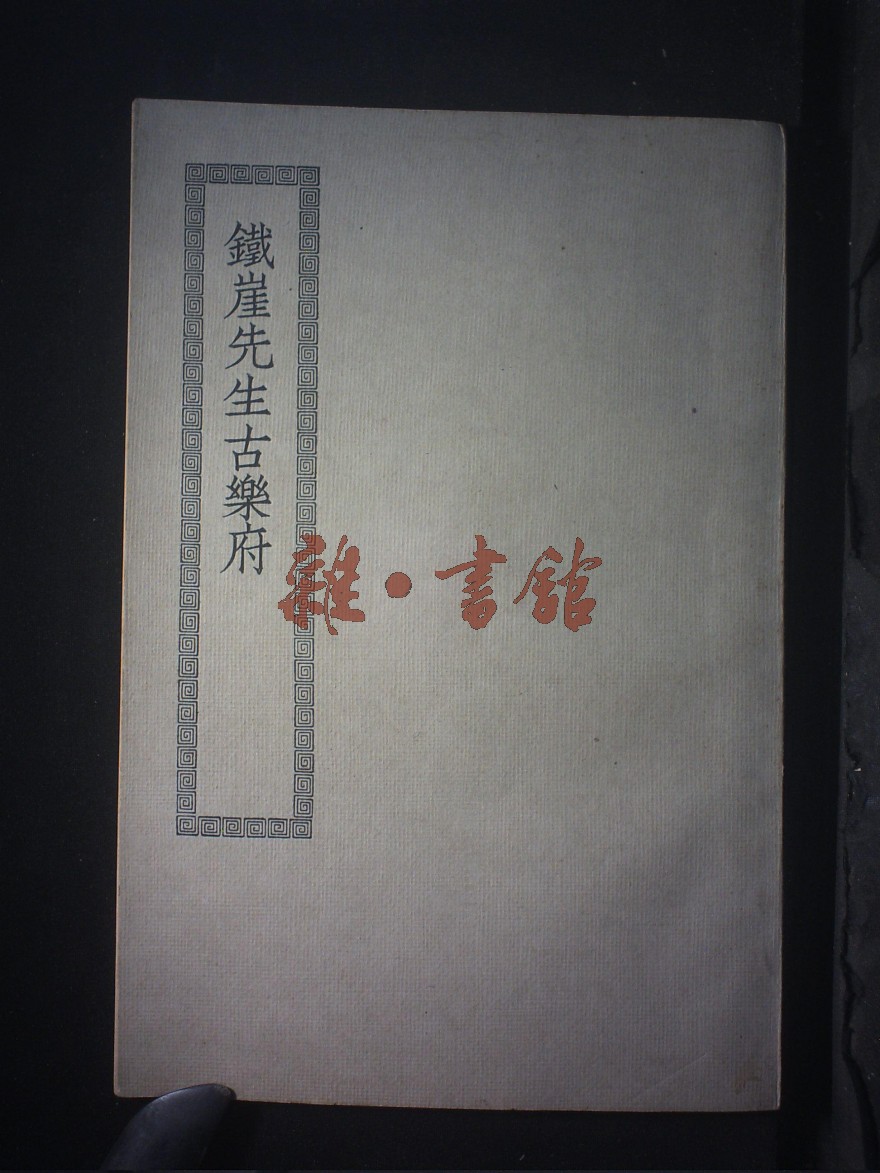 鐵崖先生古樂府
雜·書館